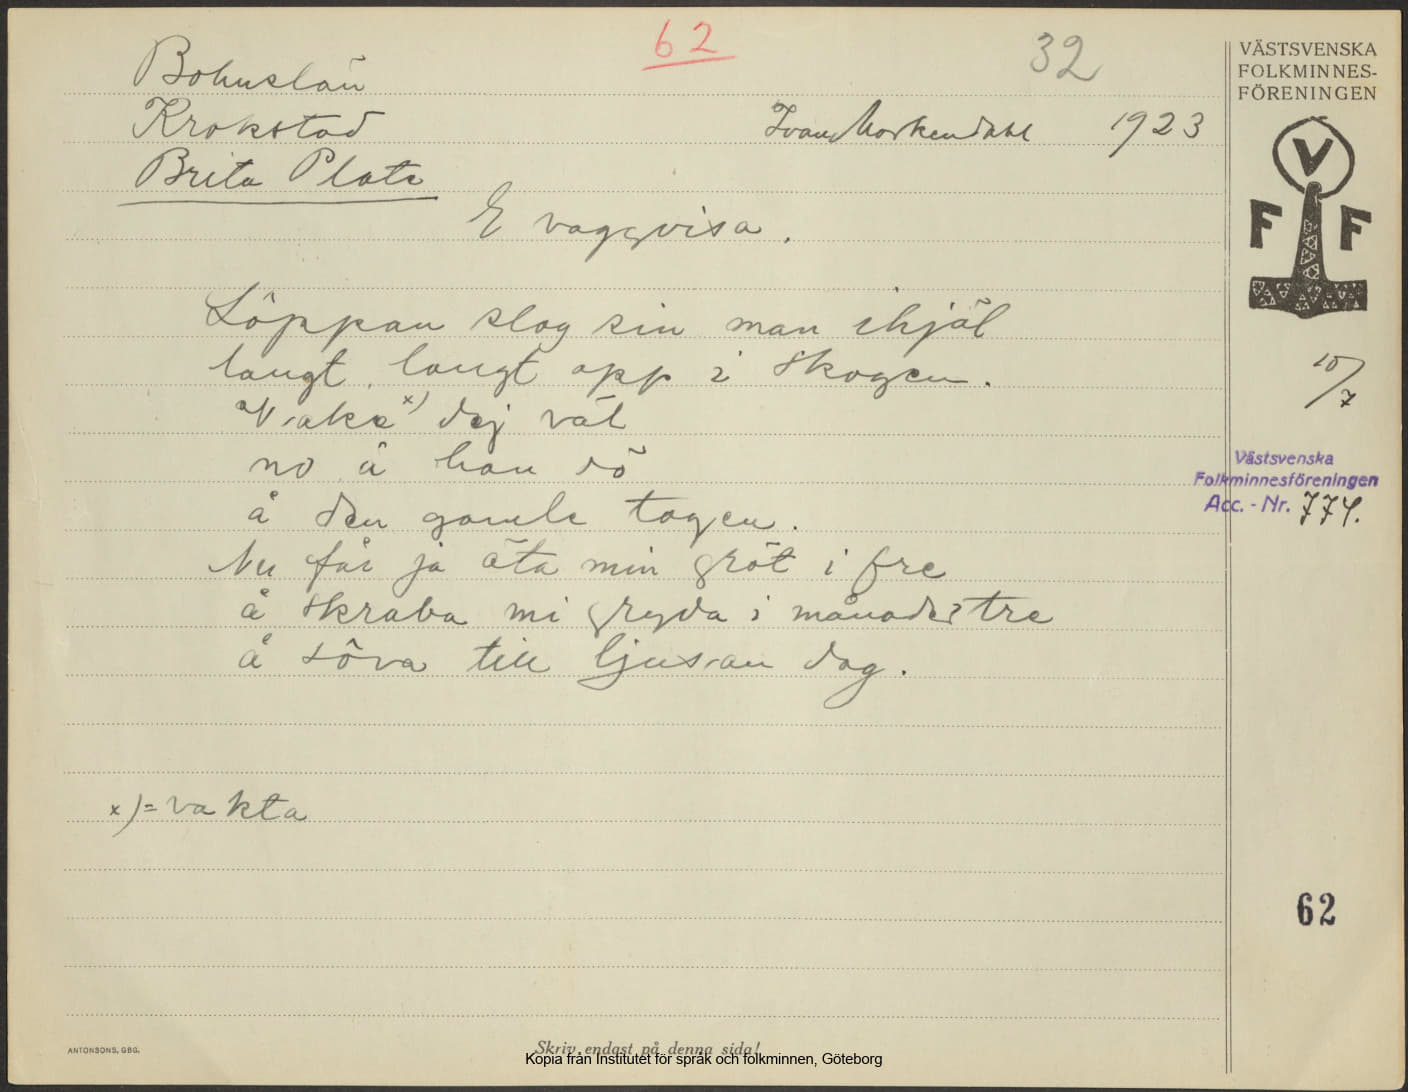 62
32
VÄSTSVENSKA
FOLKMINNES-
FÖRENINGEN
Bohuslän
Krokstad
Ivan Markendahl 1923
Brita Plate
E vaggvisa.
V
F F
Löppan slog sin man ihjäl
langt, langt opp i skogen.
"Vaka" x) dej väl
no ä han dö
å den gamle tagen.
Nu får ja äta min gröt i fre
å skraba mi gryda i månader tre
å söva till ljusan dag.
x) = vakta
10/7
Västsvenska
Folkminnesföreningen
Acc. - Nr. 774.
62
ANTONSONS, GBG.
Skriv endast på denna sida!
Kopia från Institutet för språk och folkminnen, Göteborg